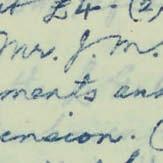 £4. (2)
Mr. J M.
ments an
ension. (